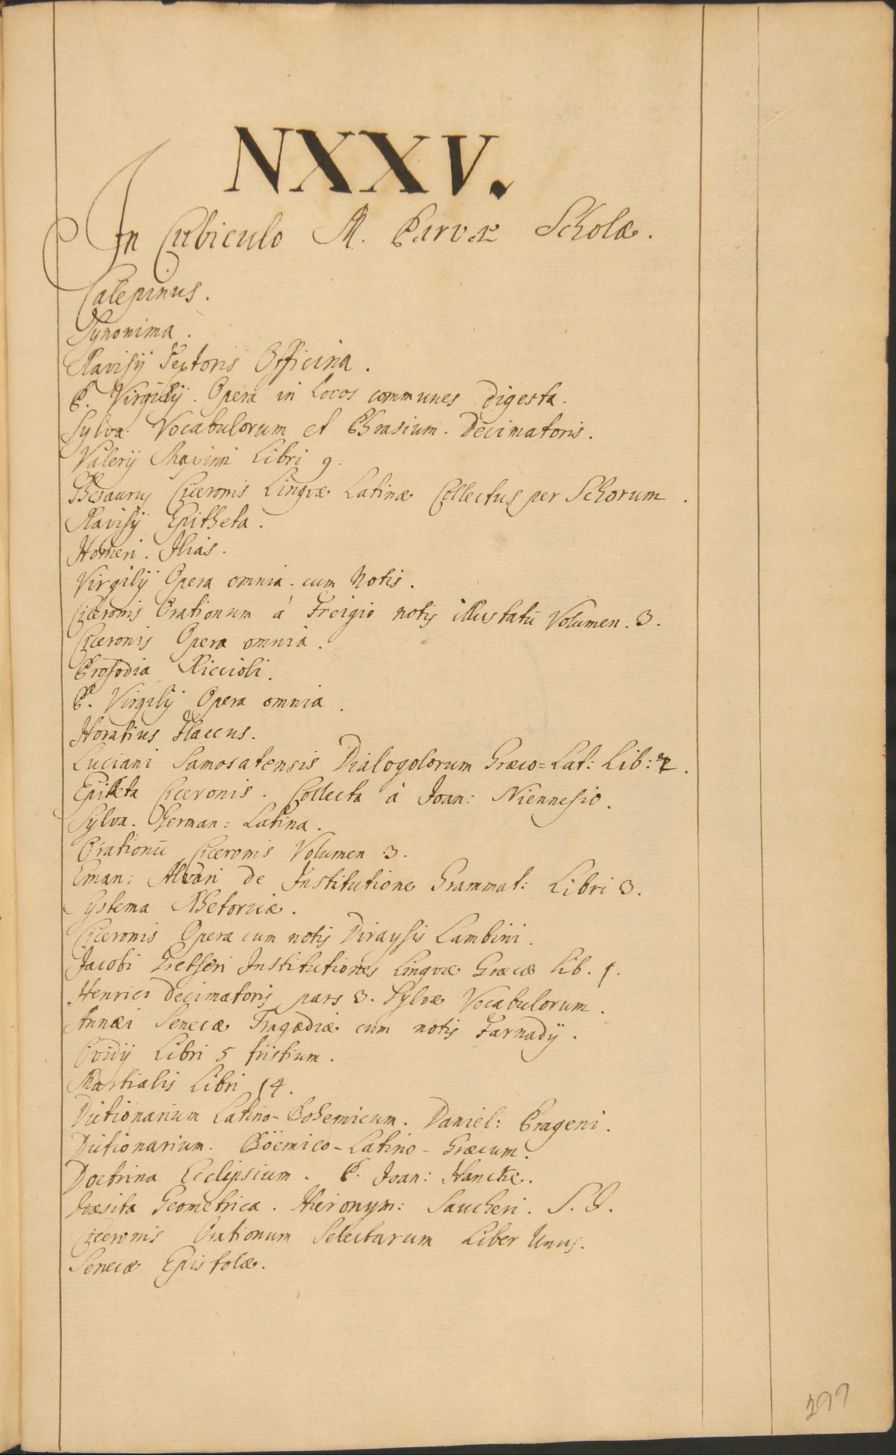 NXXV.
In Cubiculo M. Parvæ Scholæ.
Calepinus.
Synonima.
Ravisij Textoris Officina.
P. Virgilij. Opera in locos communes digesta.
Sylva Vocabulorum et Phrasium. Decimatoris.
Valerij Maximi Libri 9.
Thesaurus Ciceronis Linguæ Latinæ Collectus per Schorum.
Ravisij Epitheta.
Homeri. Ilias.
Virgilij Opera omnia. cum Notis.
Ciceronis Orationum á Freigio notis illustratū Volumen. 3.
Ciceronis Opera omnia.
Prosodia Riccioli.
P. Virgilij Opera omnia.
Horatius Flaccus.
Luciani Samosatensis Dialogolorum Græco=Lat: Lib:
Epiteta Ciceronis. Collecta á Joan: Niennesio.
Sylva. German: Latina.
Orationū Ciceronis Volumen 3.
Eman: Alvari de Institutione Grammat: Libri 3.
Systema Rhetoricæ.
Ciceronis Opera cum notis Lambini.
Jacobi Gretseri Institutiones Linguæ Græcæ Lib. 1.
Henrici Decimatoris pars 3. Sylvæ Vocabulorum.
Annæi Senecæ Tragædiæ cum notis Farnadij.
Ovidij Libri 5 tristium.
Martialis Libri 14.
Dictionarium Latino-Bohemicum. Daniel: Prageni.
Dictionarium. Böemico-Latino-Græcum.
Doctrina Eclipsium. P. Joan: Hancke.
Geometrica. Hieronym: Saucheri. S. J.
Ciceronis Orationum Selectarum Liber Unus.
Senecæ Epistolæ.